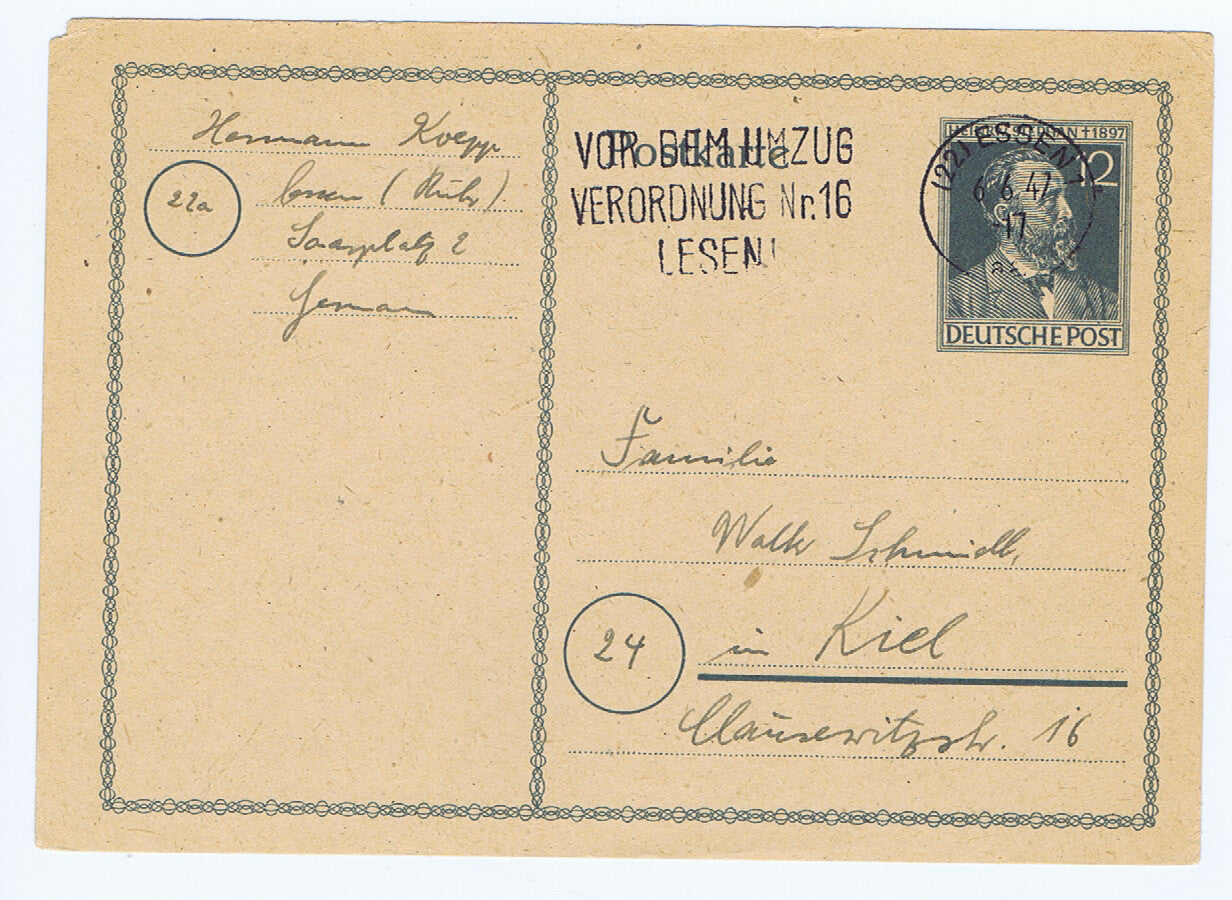 Hermann Koepp
22a
Essen (Ruhr)
Saarplatz 2
German
Postkarte
VOR DEM UMZUG
VERORDNUNG Nr. 16
LESEN!
(22) ESSEN 1
6.6.47
-17
HEINRICH v. STEPHAN † 1897
12
DEUTSCHE POST
Familie
Walter Schmidt,
24
in Kiel
Clausewitzstr. 16